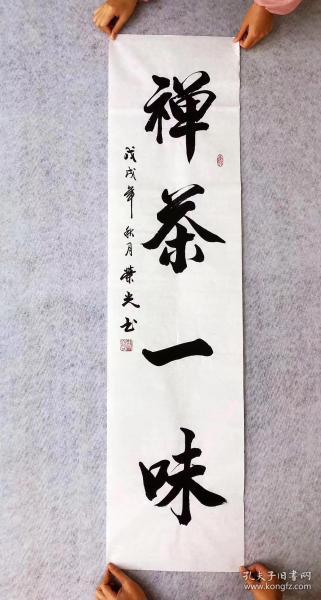 禅茶一味
戊戌年秋月荣光书
孔夫子旧书网
www.kongfz.com